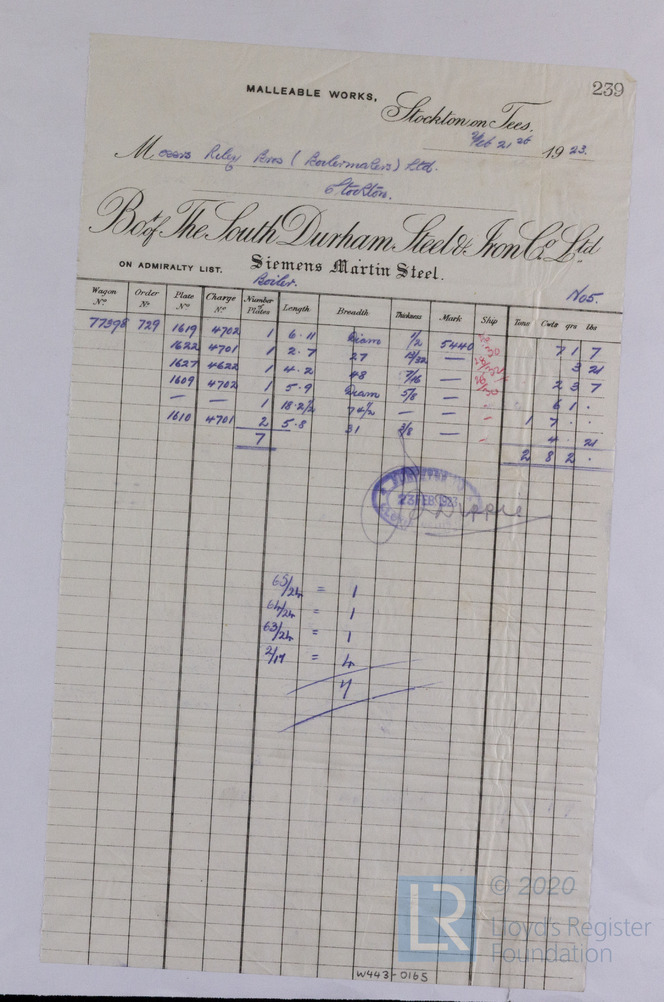 239
MALLEABLE WORKS,
Stockton on Tees,
Feb 21st 1923.
Messrs Riley Bros (Boilermakers) Ltd.
Stockton.
Bot. of The South Durham Steel & Iron Co Ltd
ON ADMIRALTY LIST. Siemens Martin Steel.
Boiler. No5.
Wagon No. Order No. Plate No. Charge No. Number of Plates Length Breadth Thickness Mark Ship Tons Cwts qrs lbs
77398 729 1619 4702 1 6.11 Diam 1/2 5440 7 1 7
1622 4701 1 2.7 27 13/32 — 3 21
1627 4622 1 4.2 48 7/16 — 2 3 7
1609 4702 1 5.9 Diam 5/8 — 6 1 .
— — 1 18.2 1/2 74 1/2 — — 1 7 . .
1610 4701 2 5.8 31 3/8 — 4 . 21
7 2 8 2 .
23 FEB 1923
65/24 = 1
64/24 = 1
63/24 = 1
2/17 = 4
7
LR © 2020
Lloyd's Register
Foundation
W443-0165